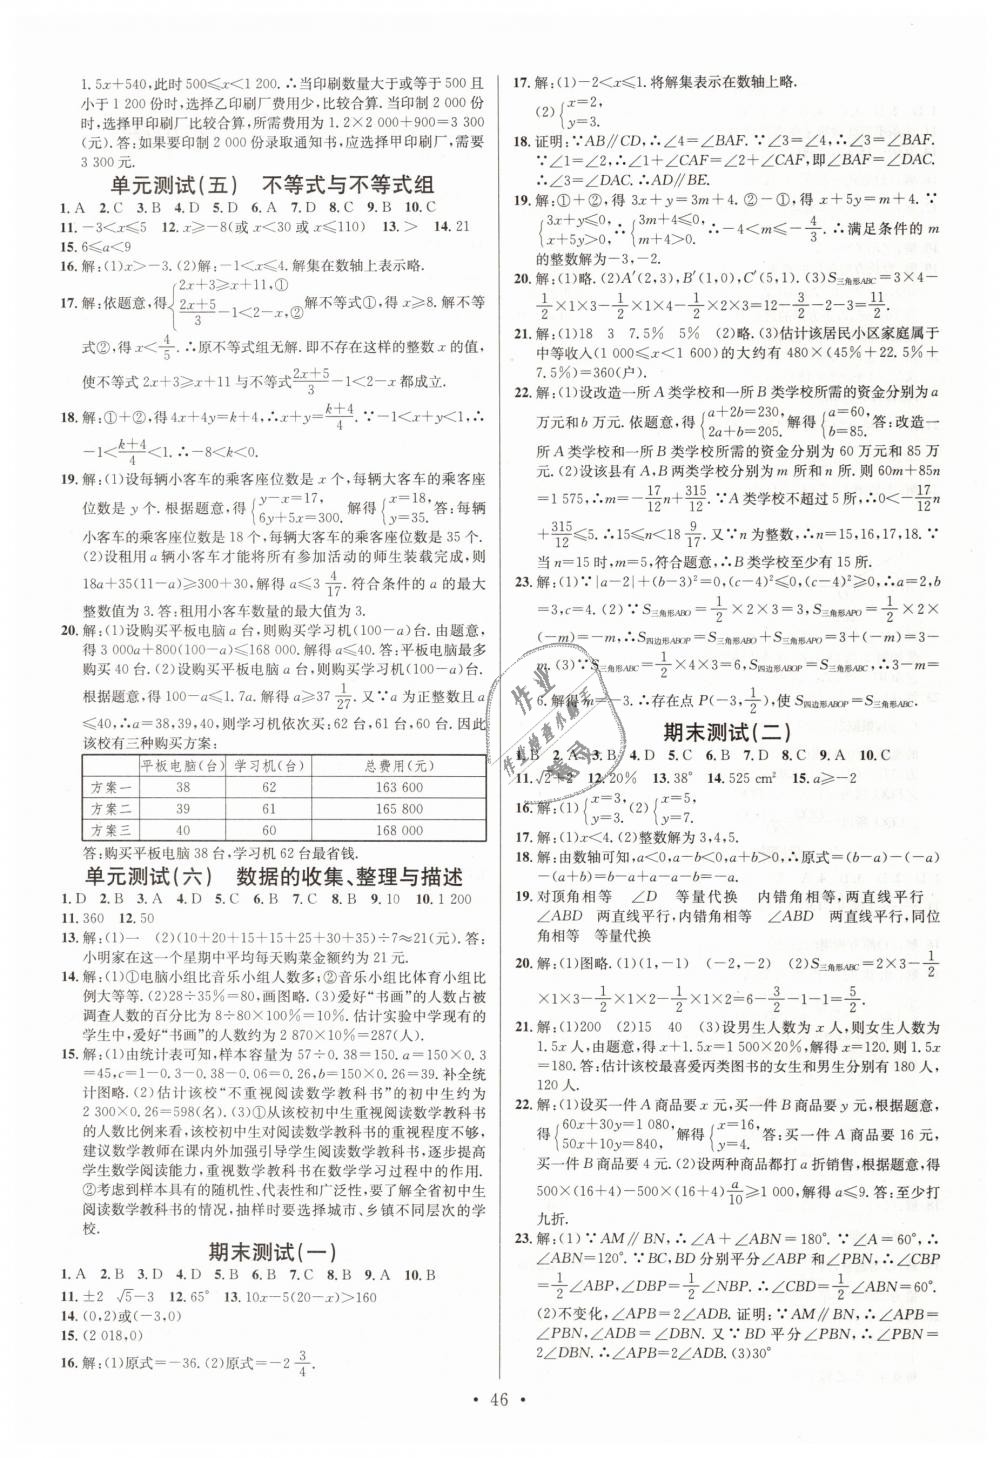 1.5x+540,此时500≤x<1 200.∴当印刷数量大于或等于500且
小于1 200份时,选择乙印刷厂费用少,比较合算.当印制2 000份
时,选择甲印刷厂比较合算,所需费用为1.2×2 000+900=3 300
(元).答:如果要印制2 000份录取通知书,应选择甲印刷厂,需要
3 300元.
单元测试(五) 不等式与不等式组
1.A 2.C 3.B 4.D 5.D 6.A 7.D 8.C 9.B 10.C
11.-3<x≤5 12.x≥-8(或x<30或x≤110) 13.> 14.21
15.6≤a<9
16.解:(1)x>-3.(2)解:-1<x≤4.解集在数轴上表示略.
17.解:依题意,得{2x+3≥x+11,① (2x+5)/3-1<2-x,② 解不等式①,得x≥8.解不等
式②,得x<4/5.∴原不等式组无解.即不存在这样的整数x的值,
使不等式2x+3≥x+11与不等式(2x+5)/3-1<2-x都成立.
18.解:①+②,得4x+4y=k+4,∴x+y=(k+4)/4.∵-1<x+y<1,∴
-1<(k+4)/4<1.∴-8<k<0.
19.解:(1)设每辆小客车的乘客座位数是x个,每辆大客车的乘客座
位数是y个.根据题意,得{y-x=17, 6y+5x=300. 解得{x=18, y=35. 答:每辆
小客车的乘客座位数是18个,每辆大客车的乘客座位数是35个.
(2)设租用a辆小客车才能将所有参加活动的师生装载完成,则
18a+35(11-a)≥300+30,解得a≤3 4/17.符合条件的a的最大
整数值为3.答:租用小客车数量的最大值为3.
20.解:(1)设购买平板电脑a台,则购买学习机(100-a)台.由题意,
得3 000a+800(100-a)≤168 000.解得a≤40.答:平板电脑最多
购买40台.(2)设购买平板电脑a台,则购买学习机(100-a)台.
根据题意,得100-a≤1.7a.解得a≥37 1/27.又∵a为正整数且a
≤40,∴a=38,39,40,则学习机依次买:62台,61台,60台.因此
该校有三种购买方案:
平板电脑(台) 学习机(台) 总费用(元)
方案一 38 62 163 600
方案二 39 61 165 800
方案三 40 60 168 000
答:购买平板电脑38台,学习机62台最省钱.
单元测试(六) 数据的收集、整理与描述
1.D 2.B 3.A 4.D 5.C 6.B 7.C 8.B 9.10 10.1 200
11.360 12.50
13.解:(1)一 (2)(10+20+15+15+25+30+35)÷7≈21(元).答:
小明家在这一个星期中平均每天购菜金额约为21元.
14.解:(1)①电脑小组比音乐小组人数多;②音乐小组比体育小组比
例大等等.(2)28÷35%=80,画图略.(3)爱好“书画”的人数占被
调查人数的百分比为8÷80×100%=10%.估计实验中学现有的
学生中,爱好“书画”的人数约为2 870×10%=287(人).
15.解:(1)由统计表可知,样本容量为57÷0.38=150.a=150×0.3
=45,c=1-0.3-0.38-0.06=0.26,b=150×0.26=39.补全统
计图略.(2)估计该校“不重视阅读数学教科书”的初中生约为
2 300×0.26=598(名).(3)①从该校初中生重视阅读数学教科书
的人数比例来看,该校初中生对阅读数学教科书的重视程度不够,
建议数学教师在课内外加强引导学生阅读数学教科书,逐步提高
学生数学阅读能力,重视数学教科书在数学学习过程中的作用.
②考虑到样本具有的随机性、代表性和广泛性,要了解全省初中生
阅读数学教科书的情况,抽样时要选择城市、乡镇不同层次的学
校.
期末测试(一)
1.A 2.B 3.D 4.D 5.D 6.B 7.C 8.C 9.A 10.B
11.±2 √5-3 12.65° 13.10x-5(20-x)>160
14.(0,2)或(-3,0)
15.(2 018,0)
16.解:(1)原式=-36.(2)原式=-2 3/4.
17.解:(1)-2<x≤1.将解集表示在数轴上略.
(2){x=2, y=3.
18.证明:∵AB∥CD,∴∠4=∠BAF.∵∠3=∠4,∴∠3=∠BAF.
∵∠1=∠2,∴∠1+∠CAF=∠2+∠CAF,即∠BAF=∠DAC.
∴∠3=∠DAC.∴AD∥BE.
19.解:①+②,得3x+y=3m+4.②-①,得x+5y=m+4.∵
{3x+y≤0, x+5y>0, ∴{3m+4≤0, m+4>0. ∴-4<m≤-4/3.∴满足条件的m
的整数解为-3,-2.
20.解:(1)略.(2)A′(2,3),B′(1,0),C′(5,1).(3)S三角形ABC=3×4-
1/2×1×3-1/2×1×4-1/2×2×3=12-3/2-2-3=11/2.
21.解:(1)18 3 7.5% 5% (2)略.(3)估计该居民小区家庭属于
中等收入(1 000≤x<1 600)的大约有480×(45%+22.5%+
7.5%)=360(户).
22.解:(1)设改造一所A类学校和一所B类学校所需的资金分别为a
万元和b万元.依题意,得{a+2b=230, 2a+b=205. 解得{a=60, b=85. 答:改造一
所A类学校和一所B类学校所需的资金分别为60万元和85万
元.(2)设该县有A,B两类学校分别为m所和n所.则60m+85n
=1 575,∴m=-17/12n+315/12.∵A类学校不超过5所,∴0<-17/12n
+315/12≤5.∴15≤n<18 9/17.又∵n为整数,∴n=15,16,17,18.∵
当n=15时,m=5,符合题意,∴B类学校至少有15所.
23.解:(1)∵|a-2|+(b-3)²=0,(c-4)²≤0,(c-4)²≥0,∴a=2,b
=3,c=4.(2)∵S三角形ABO=1/2×2×3=3,S三角形APO=1/2×2×
(-m)=-m,∴S四边形ABOP=S三角形ABO+S三角形APO=3+(-m)=3-
m.(3)∵S三角形ABC=1/2×4×3=6,S四边形ABOP=S三角形ABC,∴3-m=
6.解得m=-3.∴存在点P(-3,1/2),使S四边形ABOP=S三角形ABC.
期末测试(二)
1.B 2.A 3.B 4.D 5.C 6.B 7.D 8.C 9.A 10.C
11.√2+2 12.20% 13.38° 14.525 cm² 15.a≥-2
16.解:(1){x=3, y=3. (2){x=5, y=7.
17.解:(1)x<4.(2)整数解为3,4,5.
18.解:由数轴可知,a<0,a-b<0,a+b>0,∴原式=(b-a)-(-a)-
(a+b)=b-a+a-a-b=-a.
19.对顶角相等 ∠D 等量代换 内错角相等,两直线平行
∠ABD 两直线平行,内错角相等 ∠ABD 两直线平行,同位
角相等 等量代换
20.解:(1)图略.(1)(1,-1) (-2,-2) (2)S三角形ABC=2×3-1/2
×1×3-1/2×1×2-1/2×1×2=6-3/2-1-1=5/2.
21.解:(1)200 (2)15 40 (3)设男生人数为x人,则女生人数为
1.5x人,由题意,得x+1.5x=1 500×20%,解得x=120.则1.5x
=180.答:估计该校最喜爱丙类图书的女生和男生分别有180人,
120人.
22.解:(1)设买一件A商品要x元,买一件B商品要y元,根据题意,
得{60x+30y=1 080, 50x+10y=840, 解得{x=16, y=4. 答:买一件A商品要16元,
买一件B商品要4元.(2)设两种商品都打a折销售,根据题意,得
500×(16+4)-500×(16+4)a/10≥1 000,解得a≤9.答:至少打
九折.
23.解:(1)∵AM∥BN,∴∠A+∠ABN=180°.∵∠A=60°,∴
∠ABN=120°.∵BC,BD分别平分∠ABP和∠PBN,∴∠CBP
=1/2∠ABP,∠DBP=1/2∠NBP.∴∠CBD=1/2∠ABN=60°.
(2)不变化,∠APB=2∠ADB.证明:∵AM∥BN,∴∠APB=
∠PBN,∠ADB=∠DBN.又∵BD平分∠PBN,∴∠PBN=
2∠DBN.∴∠APB=2∠ADB.(3)30°
46